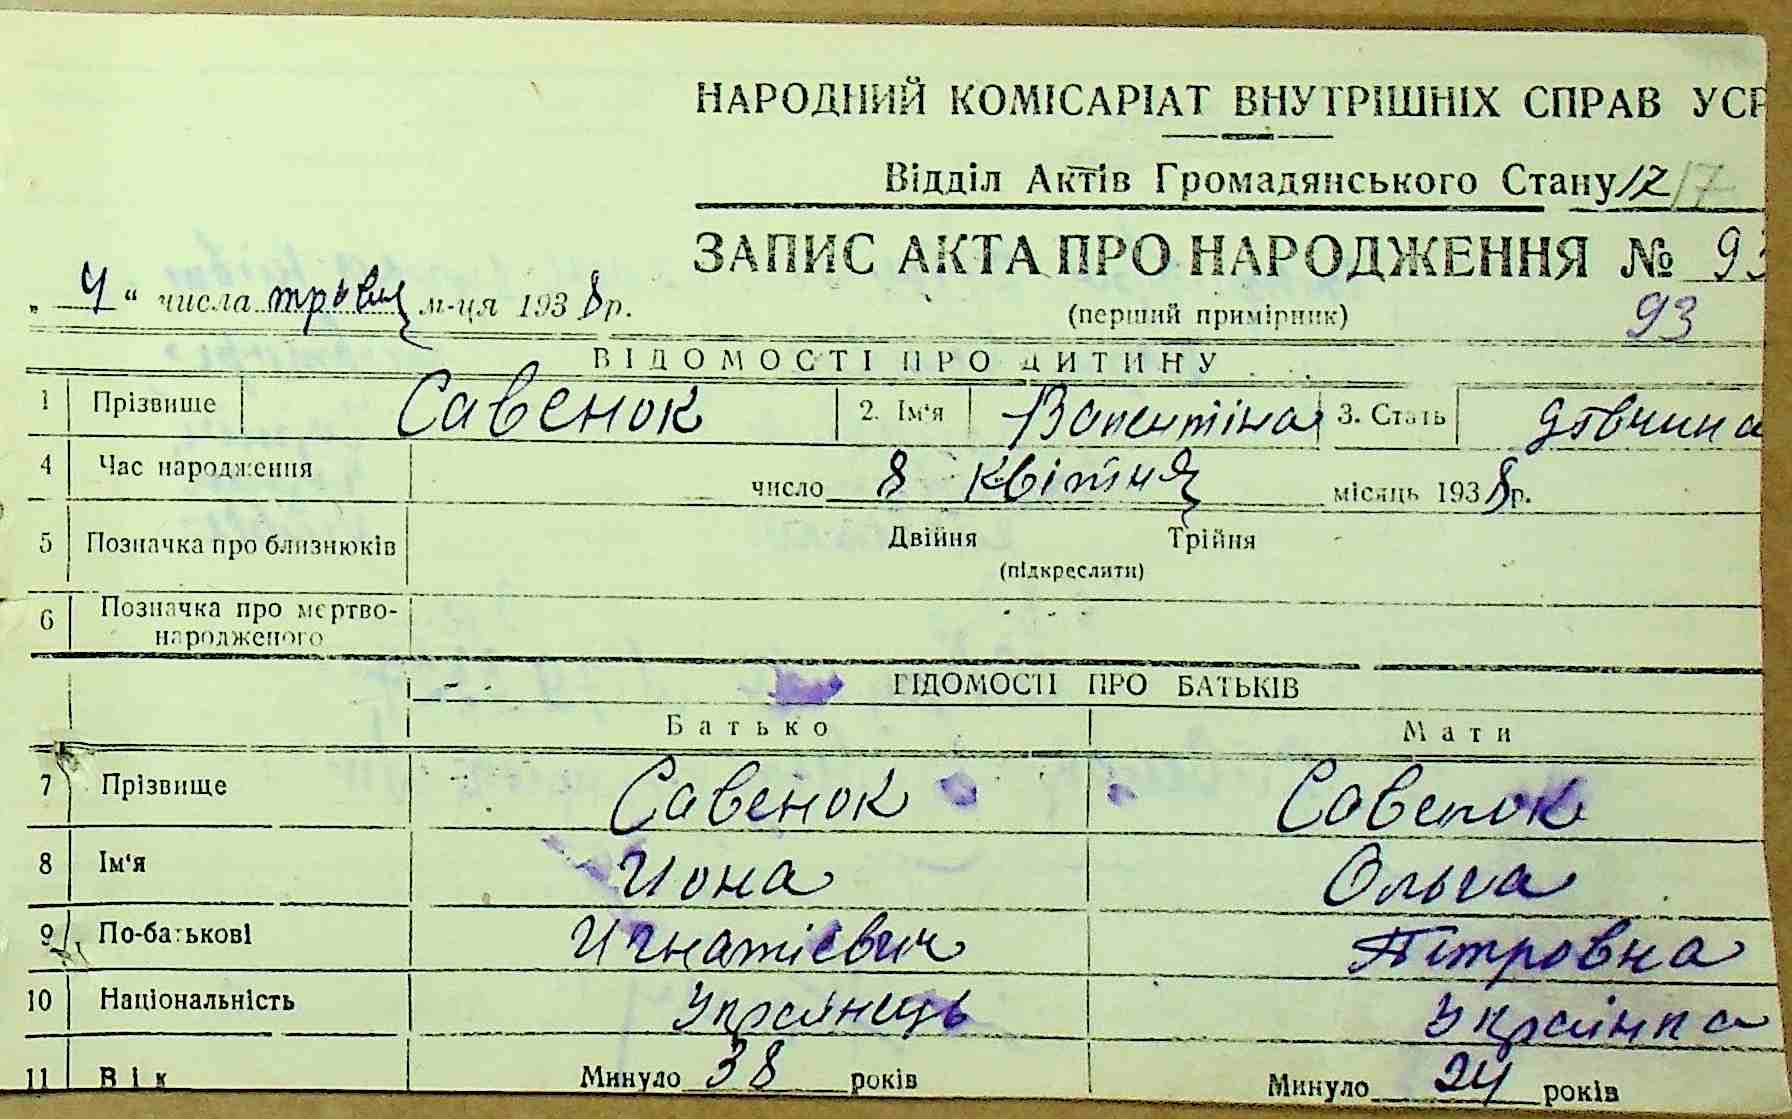 НАРОДНИЙ КОМІСАРІАТ ВНУТРІШНІХ СПРАВ УСР
Відділ Актів Громадянського Стану 17 17
ЗАПИС АКТА ПРО НАРОДЖЕННЯ № 93
„ 4 “ числа травня м-ця 1938 р. (перший примірник) 93
ВІДОМОСТІ ПРО ДИТИНУ
1 Прізвище Савенок 2. Ім'я Валентіна 3. Стать дівчина
4 Час народження число 8 квітня місяць 1938 р.
5 Позначка про близнюків Двійня Трійня
(підкреслити)
6 Позначка про мертво-
народженого
ВІДОМОСТІ ПРО БАТЬКІВ
Батько Мати
7 Прізвище Савенок Савенок
8 Ім'я Иона Ольга
9 По-батькові Игнатієвич Петровна
10 Національність Українець Українка
11 Вік Минуло 38 років Минуло 24 років